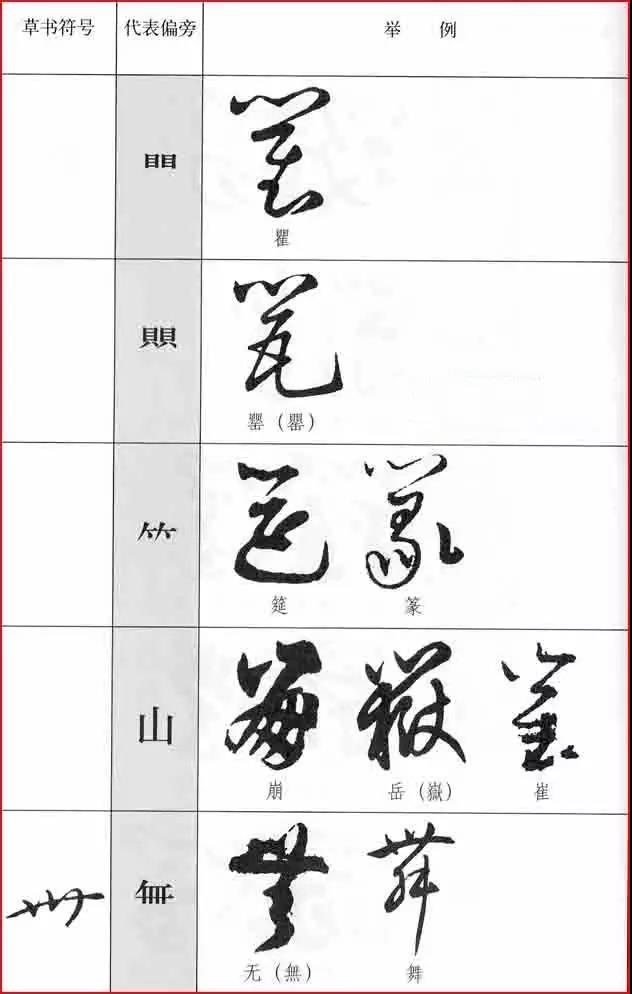 草书符号 代表偏旁 举 例
䀠
瞿
賏
罂（罌）
⺮
筵 篆
山
崩 岳（嶽） 崔
無
无（無） 舞